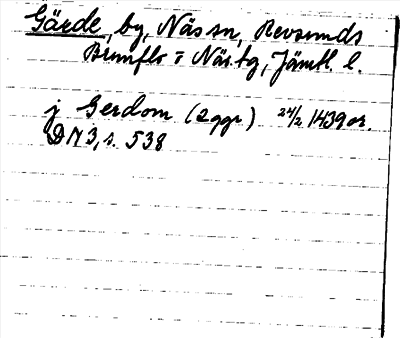 Gärde, by, Näs sn, Revsunds
Brunflo o Näs tg, Jämtl. l.
j Gerdom (2 ggr) 24/2 1439 or.
DN 3, s. 538